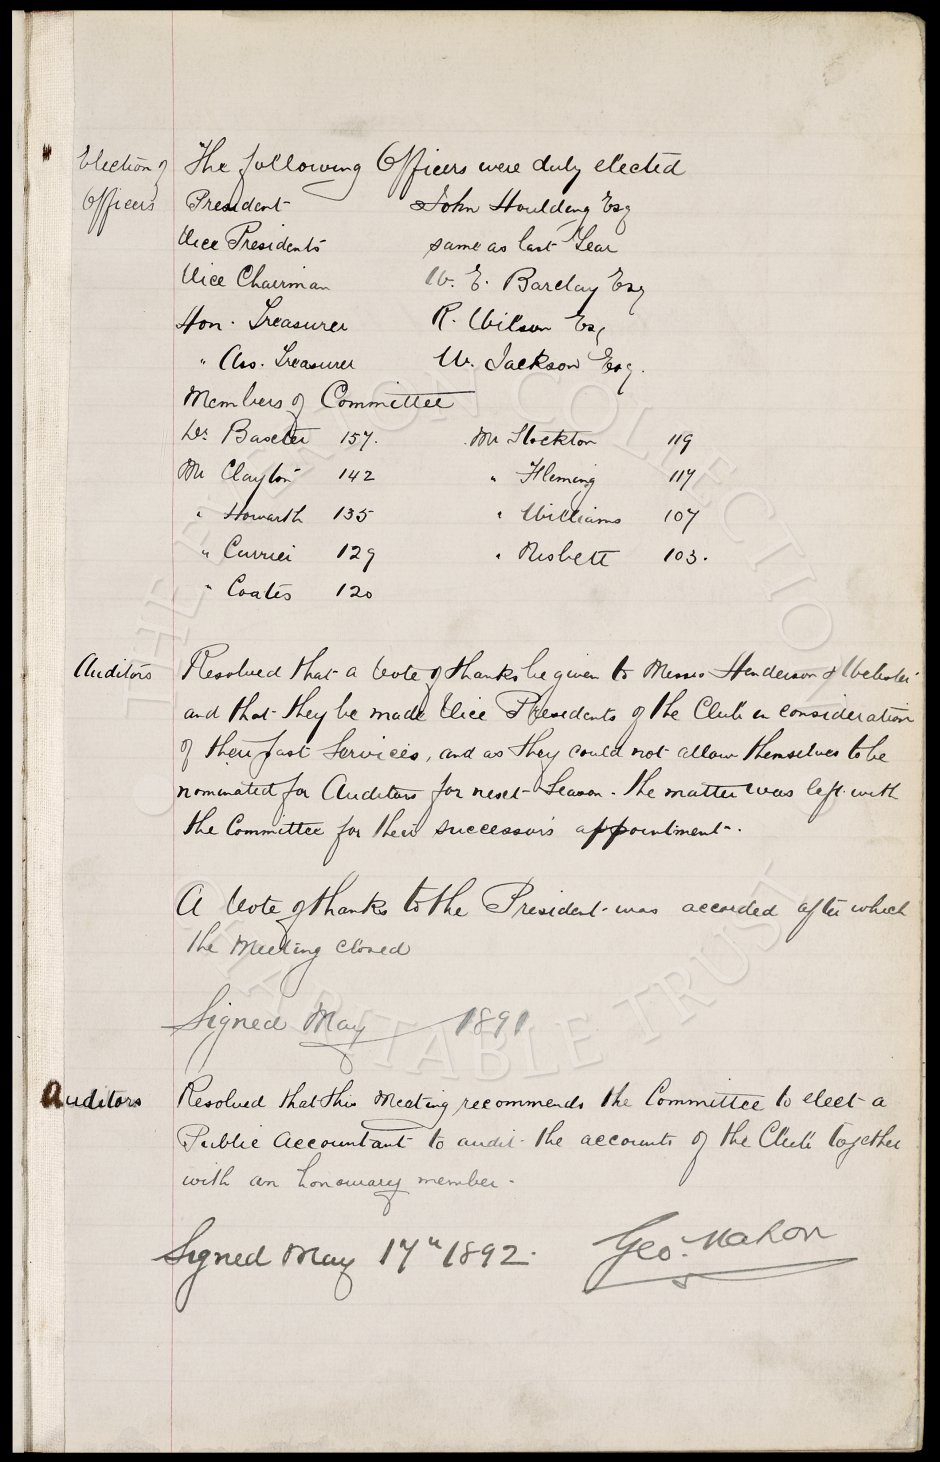 Election of The following Officers were duly elected
Officers President John Houlding Esq
Vice Presidents same as last Year
Vice Chairman W. E. Barclay Esq
Hon. Treasurer R. Wilson Esq
" Ass. Treasurer W. Jackson Esq.
Members of Committee
Dr. Baxter 157. Mr Stockton 119
Mr Clayton 142 " Fleming 117
" Howarth 135 " Williams 107
" Currier 129 " Nisbett 103.
" Coates 120
Auditors Resolved that a Vote of thanks be given to Messrs Henderson & Webster
and that they be made Vice Presidents of the Club in consideration
of their past Services, and as they could not allow themselves to be
nominated for Auditors for next Season. the matter was left with
the Committee for their successors appointment.
A Vote of thanks to the President was accorded after which
the Meeting closed
Signed May 1891
Auditors Resolved that this Meeting recommends the Committee to elect a
Public Accountant to audit the accounts of the Club together
with an honourary member.
Signed May 17th 1892. Geo. Mahon
THE EVERTON COLLECTION
CHARITABLE TRUST